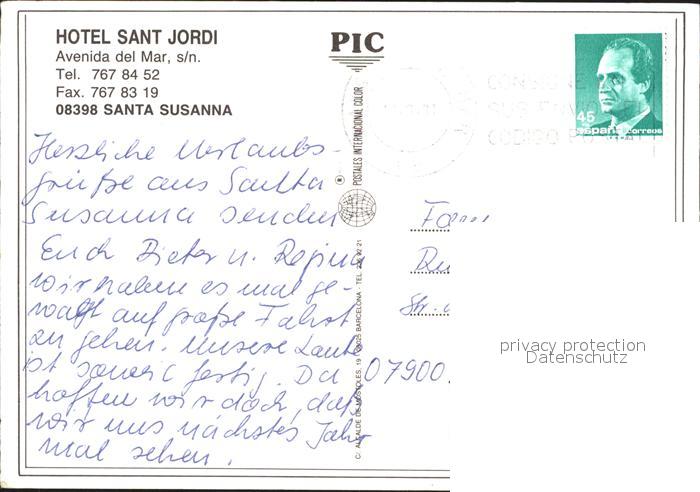 HOTEL SANT JORDI
Avenida del Mar, s/n.
Tel. 767 84 52
Fax. 767 83 19
08398 SANTA SUSANNA
PIC
POSTALES INTERNACIONAL COLOR
C/ ALCALDE DE MOSTOLES, 19
08025 BARCELONA - TEL.
45
españa correos
CONSIGNE
SUS ENVIO
CODIGO PO
Herzliche Urlaubs-
grüße aus Santa
Susanna senden
Euch Dieter u. Regina
wir haben es mal ge-
wagt auf große Fahrt
zu gehen. Unsere Laube
ist soweit fertig. Da
hoffen wir doch, daß
wir uns nächstes Jahr
mal sehen.
Fam
07900
privacy protection
Datenschutz